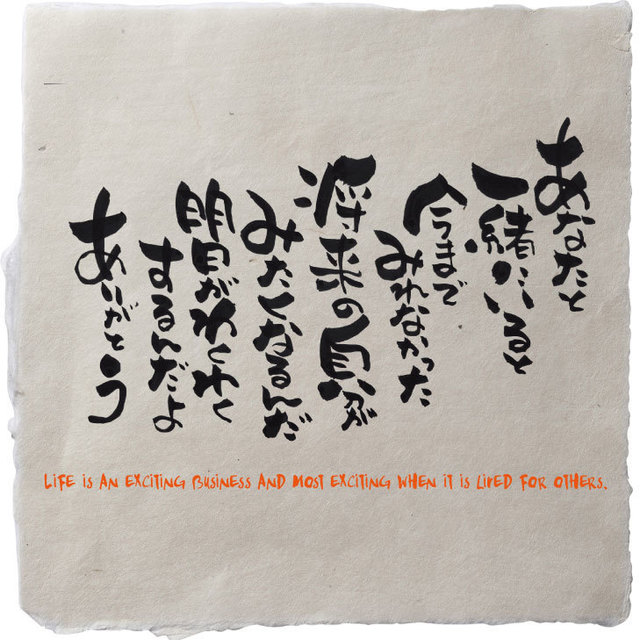 あなたと
一緒にいると
今まで
みれなかった
将来の自分が
みたくなるんだ
明日がわくわく
するんだよ
ありがとう
LIFE IS AN EXCITING BUSINESS AND MOST EXCITING WHEN IT IS LIVED FOR OTHERS.